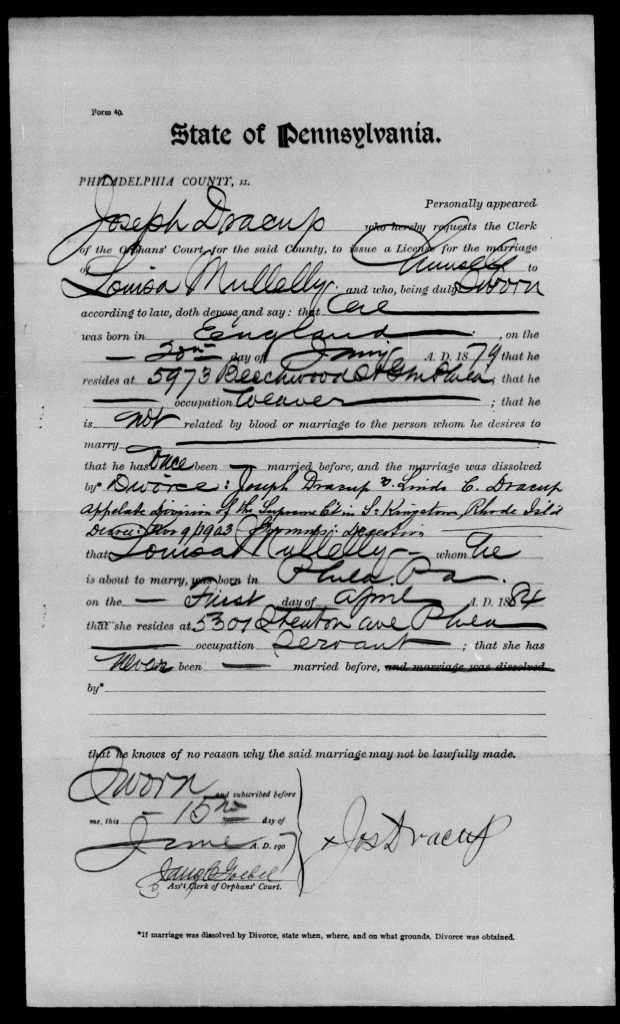 Form 40.
State of Pennsylvania.
PHILADELPHIA COUNTY, ss.
Personally appeared
Joseph Dracup who hereby requests the Clerk
of the Orphans' Court, for the said County, to issue a License for the marriage
of himself to
Louisa Mullelly and who, being duly Sworn
according to law, doth depose and say: that he
was born in England, on the
day of A. D. 1879 that he
resides at 5973 Beechwood St Phila; that he
occupation Weaver; that he
is not related by blood or marriage to the person whom he desires to
marry
that he has once been married before, and the marriage was dissolved
by* Divorce: Joseph Dracup v. C. Dracup
Appelate Division of the Supreme Ct in S. Kingston, Rhode Isl'd
Nov 9/1903 Desertion
that Louisa Mullelly whom he
is about to marry, was born in Phila Pa.
on the First day of April A. D. 1884
that she resides at 5301 Stenton ave Phila
occupation Servant; that she has
Never been married before, and marriage was dissolved
by*
that he knows of no reason why the said marriage may not be lawfully made.
Sworn and subscribed before
me, this 15 day of
June A. D. 1907
Ass't Clerk of Orphans' Court.
x Jos Dracup
*If marriage was dissolved by Divorce, state when, where, and on what grounds, Divorce was obtained.